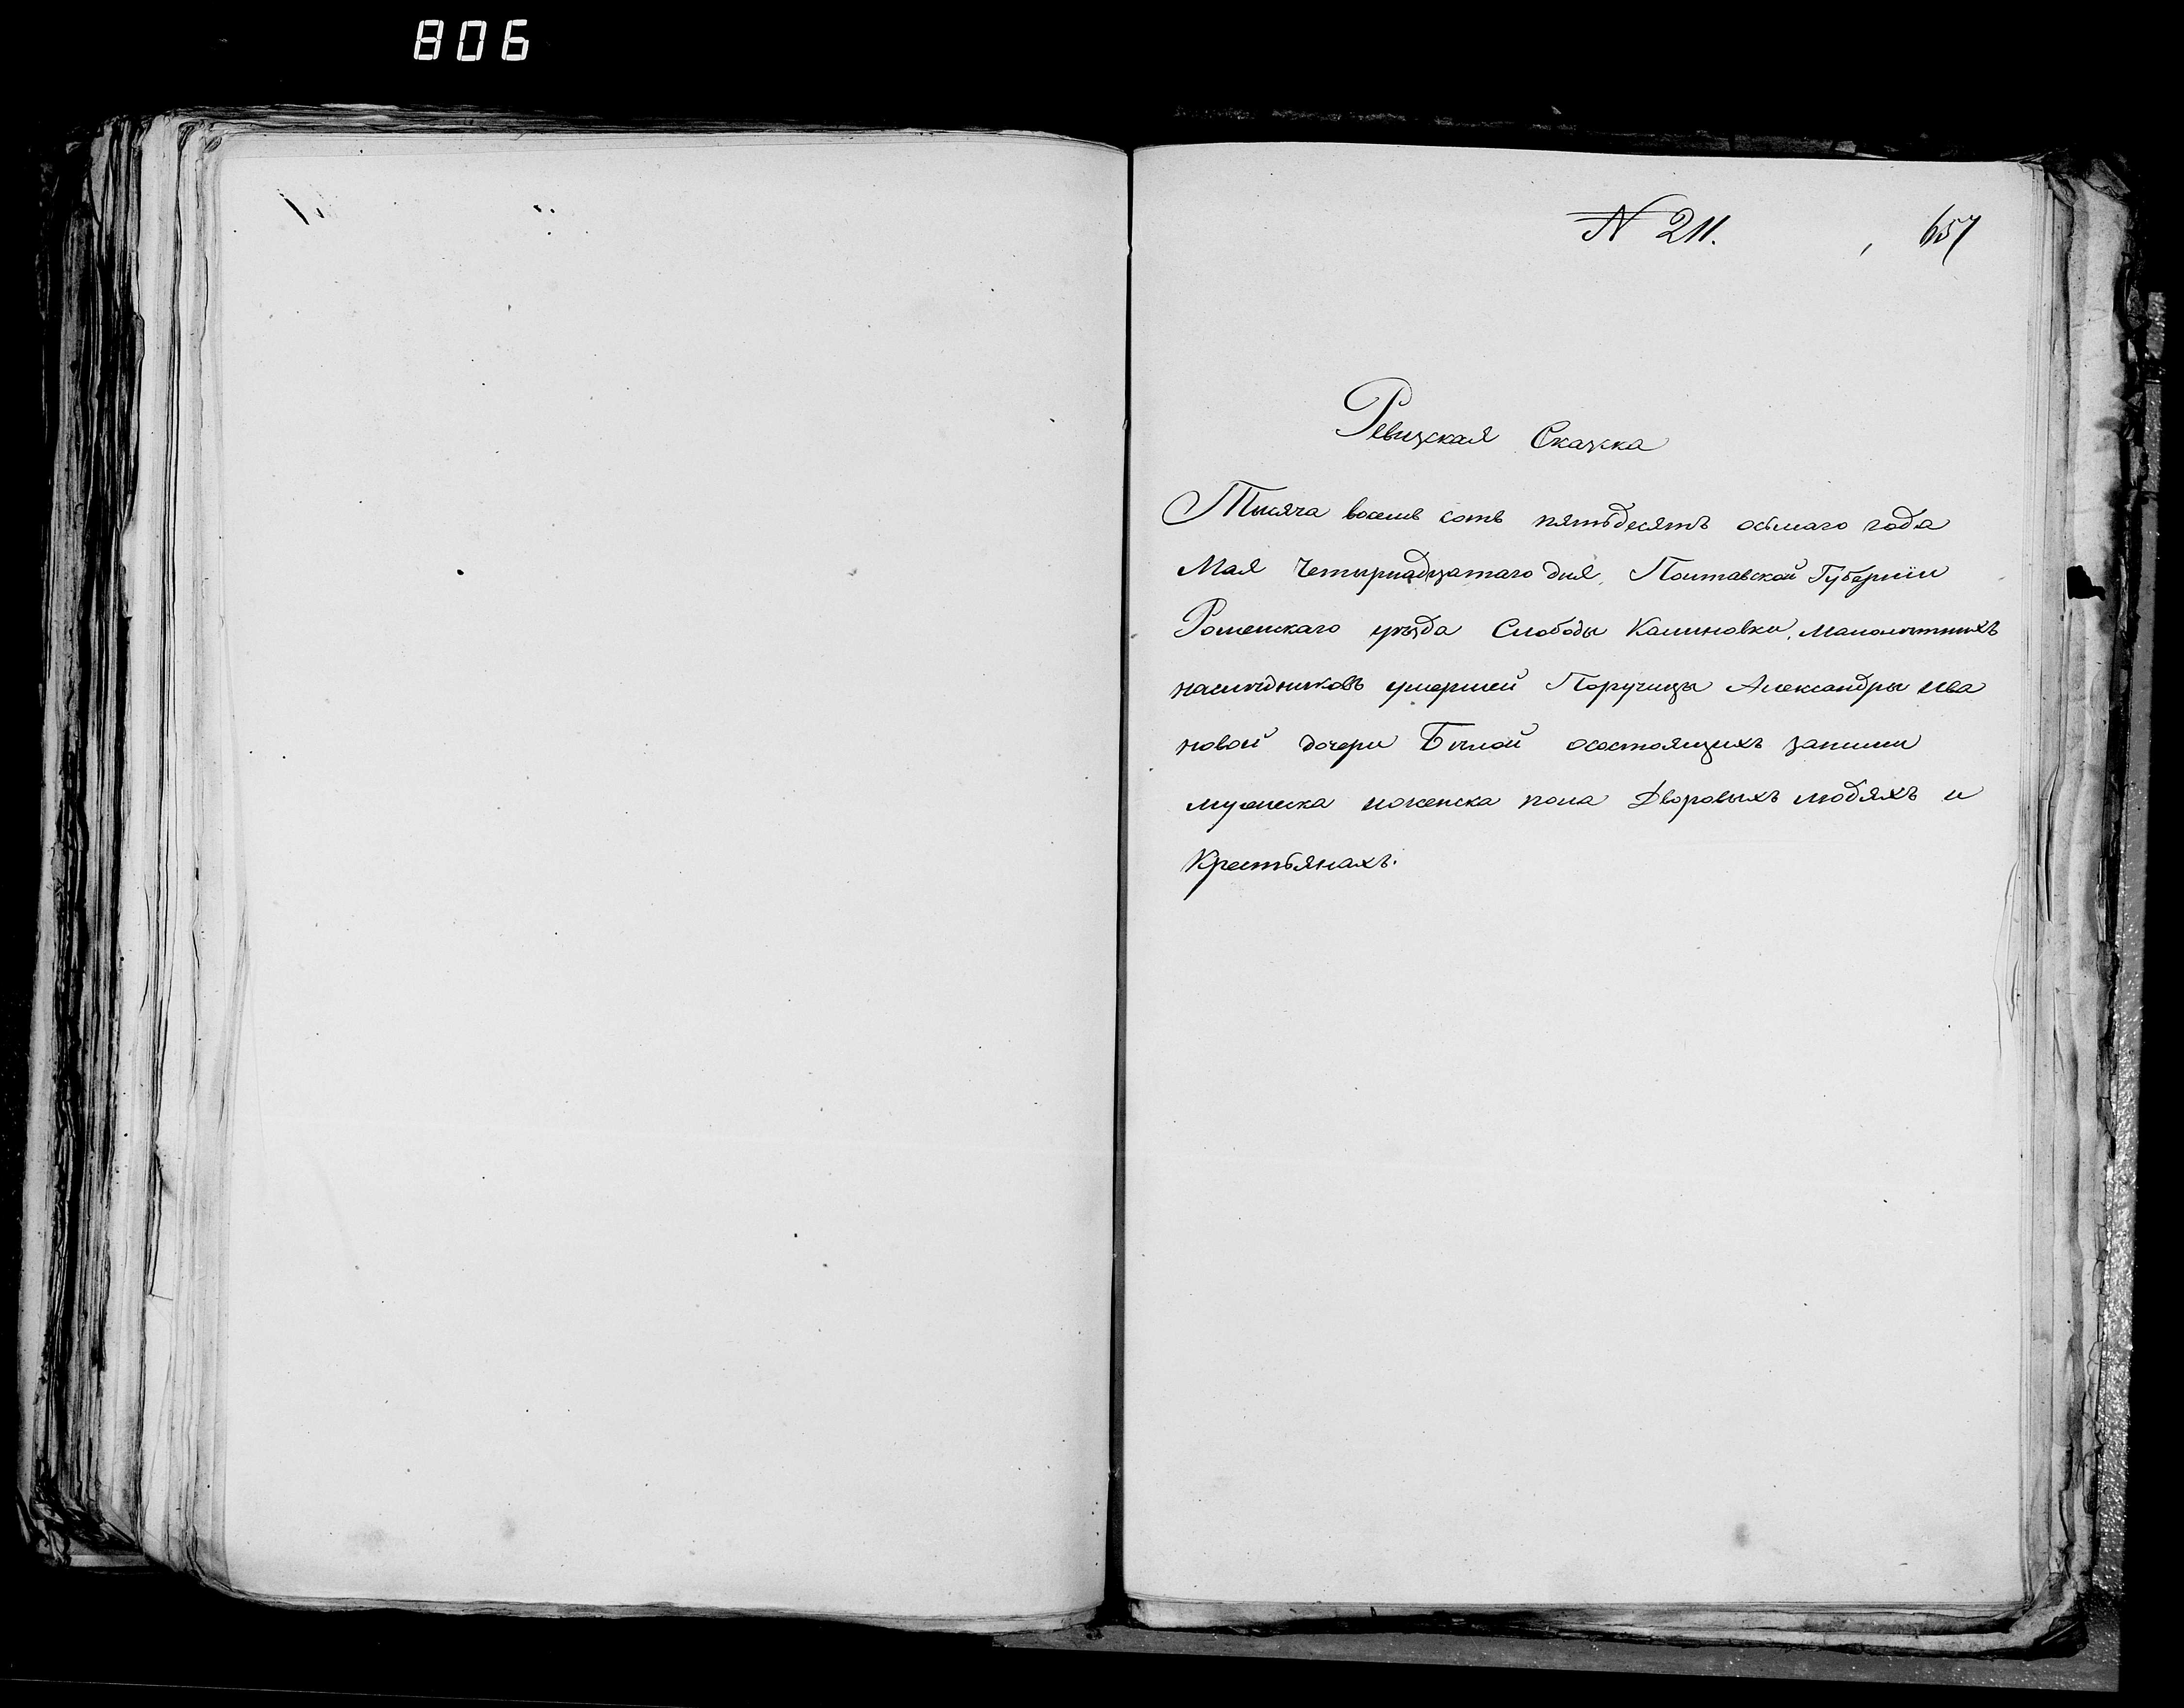 806
N 211.
657
Ревизская Сказка
Тысяча восемь сотъ пятьдесятъ осьмаго года
Мая Четырнадцатаго дня, Полтавской Губернии
Роменскаго уѣзда Слободы Калиновки, Малолѣтнихъ
наслѣдниковъ умершей Поручицы Александры Ива
новой дочери Бѣлой осостоящихъ заними
мужеска иженска пола Дворовыхъ людяхъ и
Крестьянахъ.